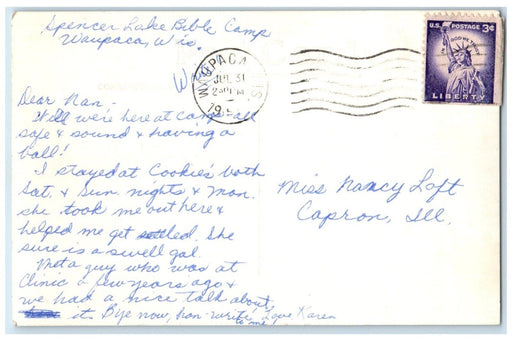 Spencer Lake Bible Camp
Waupaca, Wis.
WAUPACA
WIS
JUL 31
2 PM
19
U.S. POSTAGE 3¢
IN GOD WE TRUST
LIBERTY
Dear Nan -
Well were here at camp all
safe & sound & having a
ball!
I stayed at Cookie's both
Sat. & Sun. nights & Mon.
she took me out here &
helped me get settled. She
sure is a swell gal.
Met a guy who was at
Clinic a few years ago &
we had a nice talk about
it. Bye now, hon - write
to me, Love Karen
Miss Nancy Loft
Capron, Ill.